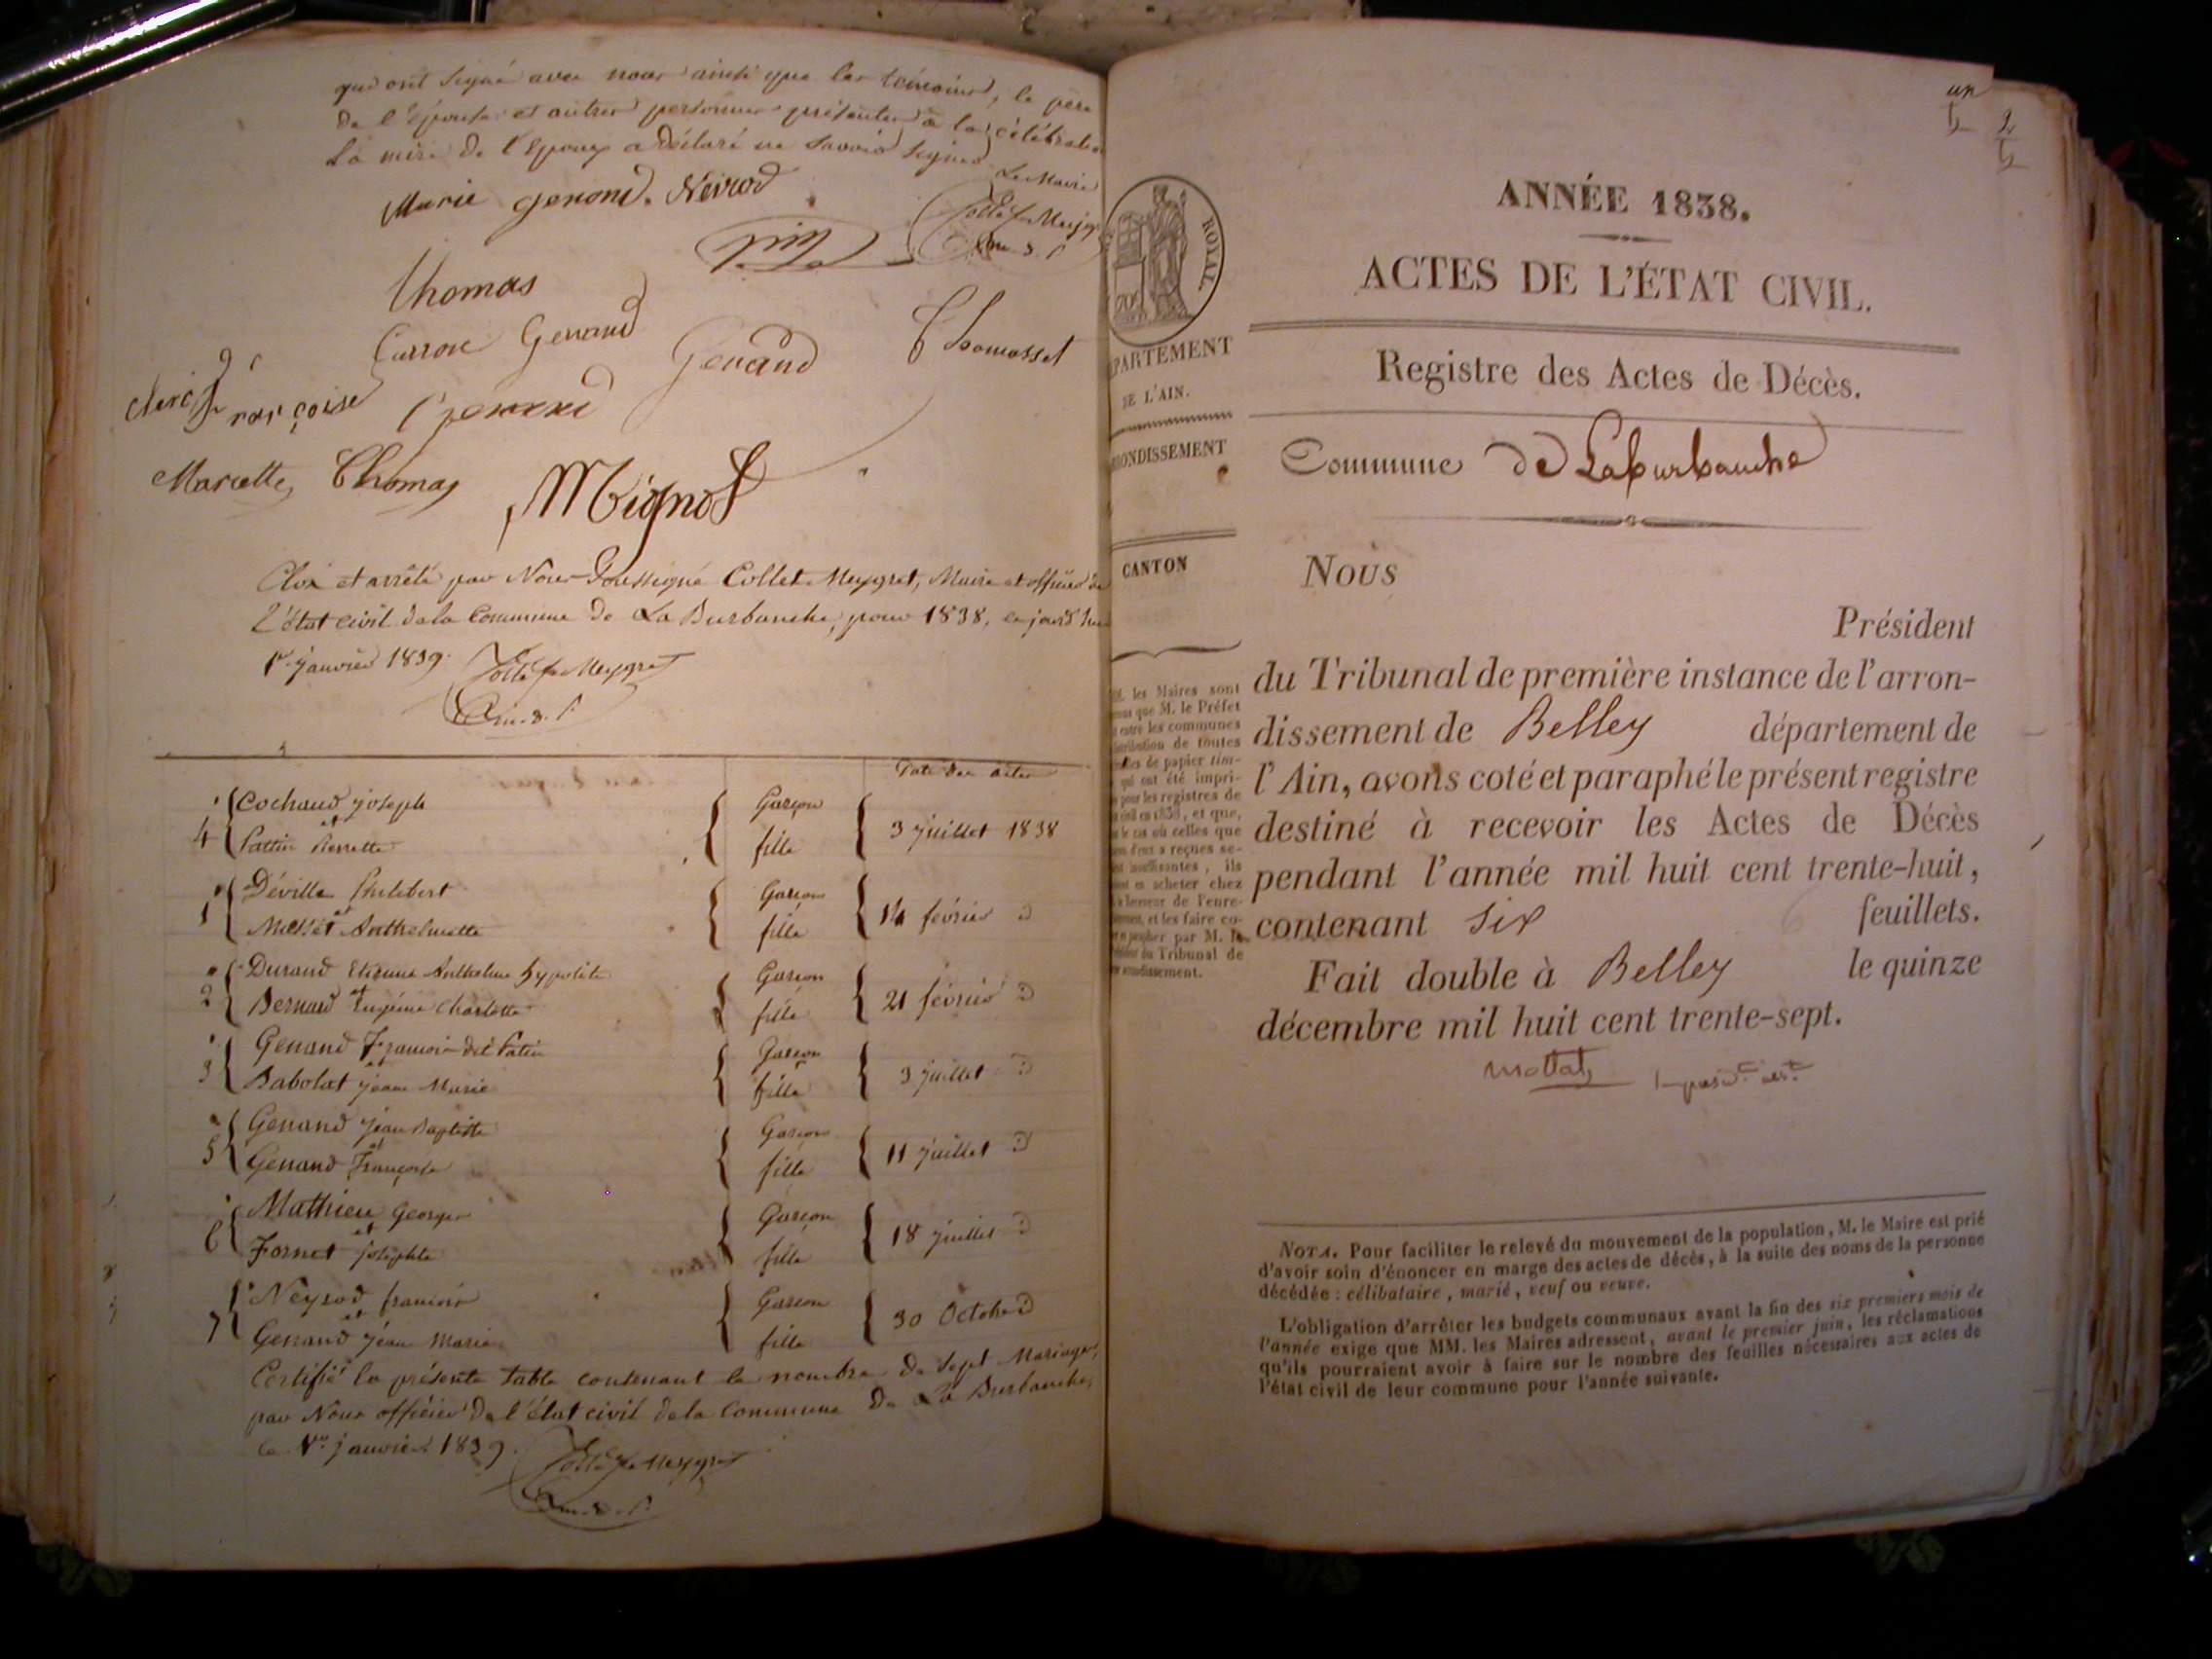 qui ont signé avec nous ainsi que les témoins, le père
de l'épouse et autres personnes présentes à la célébration
La mère de l'Epoux a déclaré ne savoir signer
Le Maire
Marie genand. Neirod
Thomas
Genand
Genand
Thomasset
clerc françoise
genand
Mariette Thomas
Mignot
Clos et arrêté par Nous Soussigné Collet-Meygret, Maire et officier de
l'état civil de la Commune de La Burbanche, pour 1838, ce jourd'hui
1er janvier 1839.
Date des actes
Cochaud joseph
4 et Garçon fille 3 juillet 1838
Pattin Pierrette
Déville Philibert
1 et Garçon fille 14 février d
Anthelmette
Durand Etienne Anthelme hypolite
2 et Garçon fille 21 février d
Bernard Eugénie Charlotte
Genand François dit Patin
3 et Garçon fille 3 juillet d
Babolat jeane Marie
Genand jean Baptiste
5 et Garçon fille 11 juillet d
Genand Françoise
Mathieu George
6 et Garçon fille 18 juillet d
Fornet josephte
Neyrod françois
7 et Garçon fille 30 Octobre d
Genand jean Marie
Certifié la présente table contenant le nombre de sept Mariages,
par Nous officier de l'état civil de la Commune de La Burbanche,
le 1er janvier 1839.
un
2
ROYAL
70c
PARTEMENT
DE L'AIN.
RONDISSEMENT
CANTON
les Maires sont
que M. le Préfet
entre les communes
tribution de toutes
de papier tim-
qui ont été impri-
pour les registres de
civil en 1838, et que,
le cas où celles que
reçues se-
insuffisantes, ils
en acheter chez
de l'enre-
et les faire co-
par M. le
du Tribunal de
arrondissement.
ANNÉE 1838.
ACTES DE L'ÉTAT CIVIL.
Registre des Actes de Décès.
Commune de Laburbanche
Nous
Président
du Tribunal de première instance de l'arron-
dissement de Belley département de
l'Ain, avons coté et paraphé le présent registre
destiné à recevoir les Actes de Décès
pendant l'année mil huit cent trente-huit,
contenant six feuillets.
Fait double à Belley le quinze
décembre mil huit cent trente-sept.
NOTA. Pour faciliter le relevé du mouvement de la population, M. le Maire est prié
d'avoir soin d'énoncer en marge des actes de décès, à la suite des noms de la personne
décédée : célibataire, marié, veuf ou veuve.
L'obligation d'arrêter les budgets communaux avant la fin des six premiers mois de
l'année exige que MM. les Maires adressent, avant le premier juin, les réclamations
qu'ils pourraient avoir à faire sur le nombre des feuilles nécessaires aux actes de
l'état civil de leur commune pour l'année suivante.